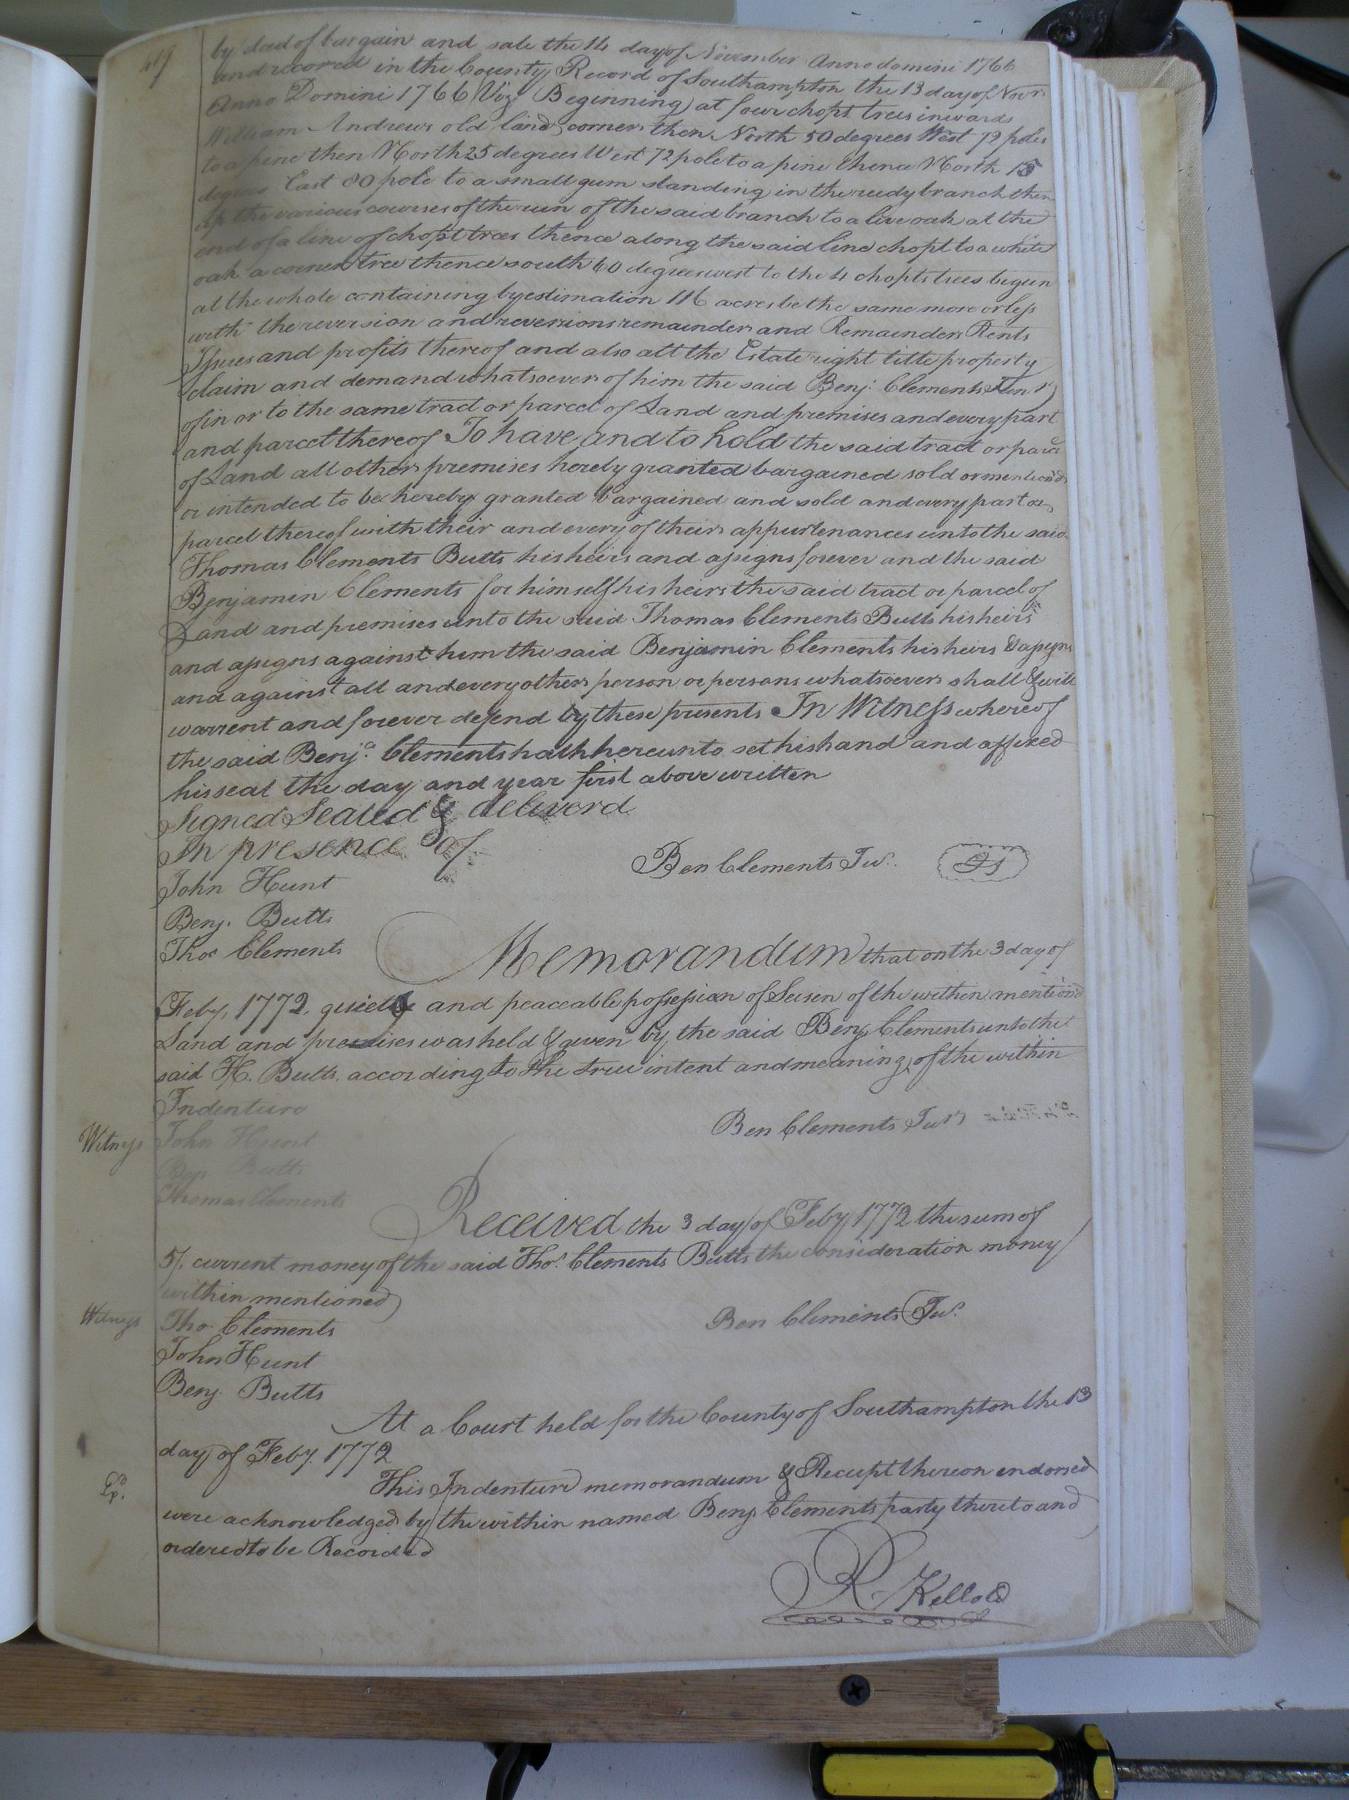 419
by deed of bargain and sale the 14 day of November Anno domini 1766
and recored in the County Record of Southampton the 13 day of Novr
Anno Domini 1766 Viz Beginning at four chopt trees inwards
William Andrews old land corner then North 50 degrees West 72 poles
to a pine then North 25 degrees West 72 pole to a pine thence North 15
degrees East 80 pole to a small gum standing in the reedy branch then
up the various courses of the run of the said branch to a live oak at the
end of a line of chopt trees thence along the said line chopt to a white
oak a corner tree thence south 60 degrees west to the 4 chopt trees begun
at the whole containing by estimation 116 acres be the same more or less
with the reversion and reversions remainder and Remainders Rents
Issues and profits thereof and also all the Estate right title property
claim and demand whatsoever of him the said Benj: Clements Junr
of in or to the same tract or parcel of Land and premises and every part
and parcel thereof To have and to hold the said tract or parcel
of Land all other premises hereby granted bargained sold or mentiond
or intended to be hereby granted bargained and sold and every part or
parcel thereof with their and every of their appurtenances unto the said
Thomas Clements Butts his heirs and assigns forever and the said
Benjamin Clements for himself his heirs the said tract or parcel of
Land and premises unto the said Thomas Clements Butts his heirs
and assigns against him the said Benjamin Clements his heirs & assigns
and against all and every other person or persons whatsoever shall & will
warrent and forever defend by these presents In Witness whereof
the said Benja. Clements hath hereunto set his hand and affixed
his seal the day and year first above written
Signed Sealed & deliverd
In presence of
Ben Clements Jur. Ls
John Hunt
Benj. Butts
Thos Clements
Memorandum that on the 3 day of
Feby, 1772. quietly and peaceable possession of Seisen of the within mentiond
Land and premises was held & given by the said Benj Clements unto the
said H. Butts. according to the true intent and meaning of the within
Indenture
Ben Clements Junr
Witness John Hunt
Benj Butts
Thomas Clements
Received the 3 day of Feby 1772 the sum of
5/. current money of the said Thos. Clements Butts the consideration money
within mentioned
Ben Clements Jur.
Witness Tho Clements
John Hunt
Benj Butts
At a Court held for the County of Southampton the 13
day of Feby. 1772
This Indenture memorandum & Receipt thereon endorsed
were acknowledged by the within named Benj Clements party thereto and
ordered to be Recorded
R. Kello